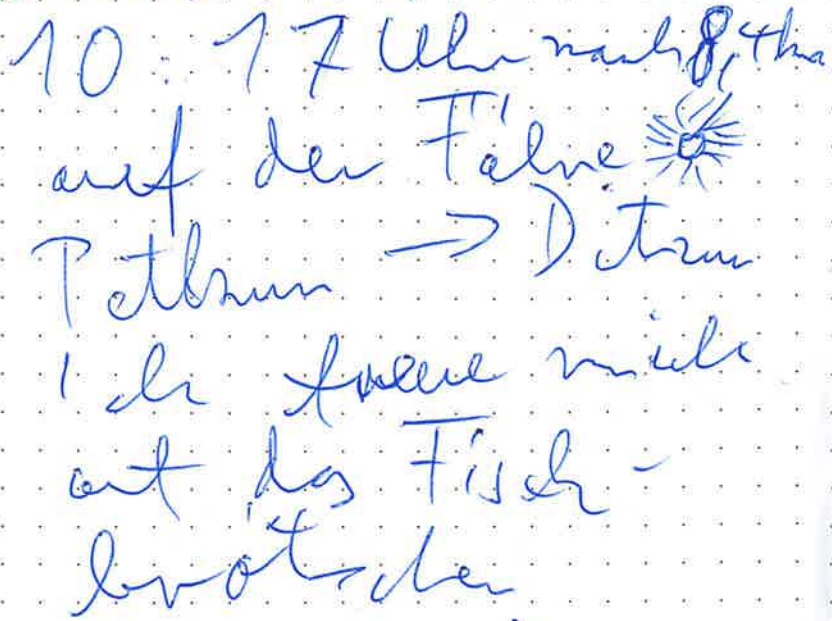 10:17 Uhr nach 8,4 km
auf der Fähre
Petkum → Ditzum
Ich freue mich
auf das Fisch-
brötchen